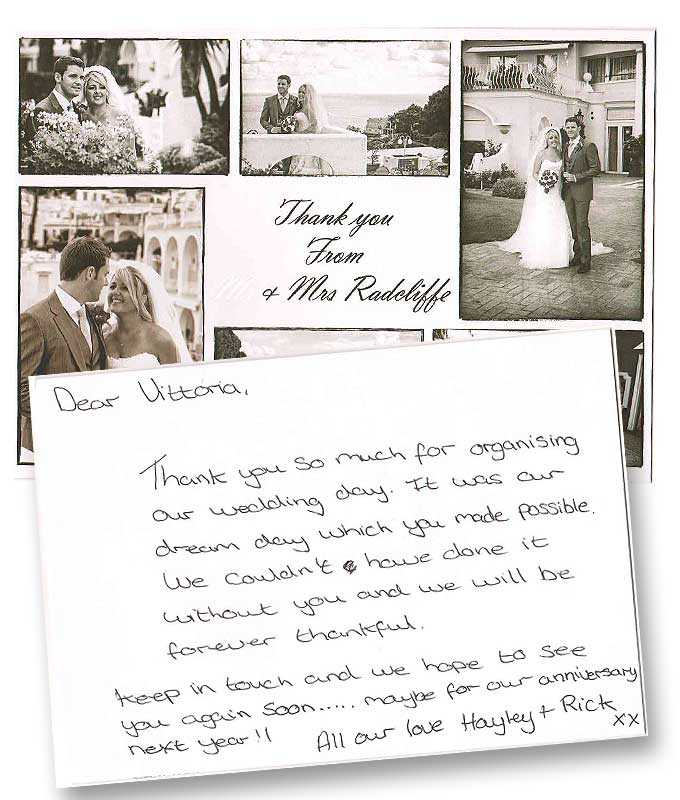 Thank you
From
Mr & Mrs Radcliffe
Dear Vittoria,
Thank you so much for organising
our wedding day. It was our
dream day which you made possible.
We couldn't have done it
without you and we will be
forever thankful.
Keep in touch and we hope to see
you again soon..... maybe for our anniversary
next year!!
All our love Hayley + Rick
xx